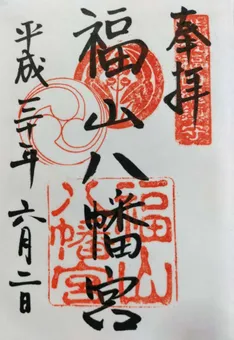 奉拝
福山八幡宮
平成三十年六月二日
福山
八幡宮